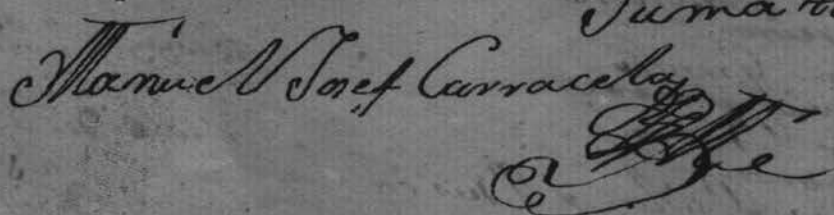 Manuel Josef Carracelas